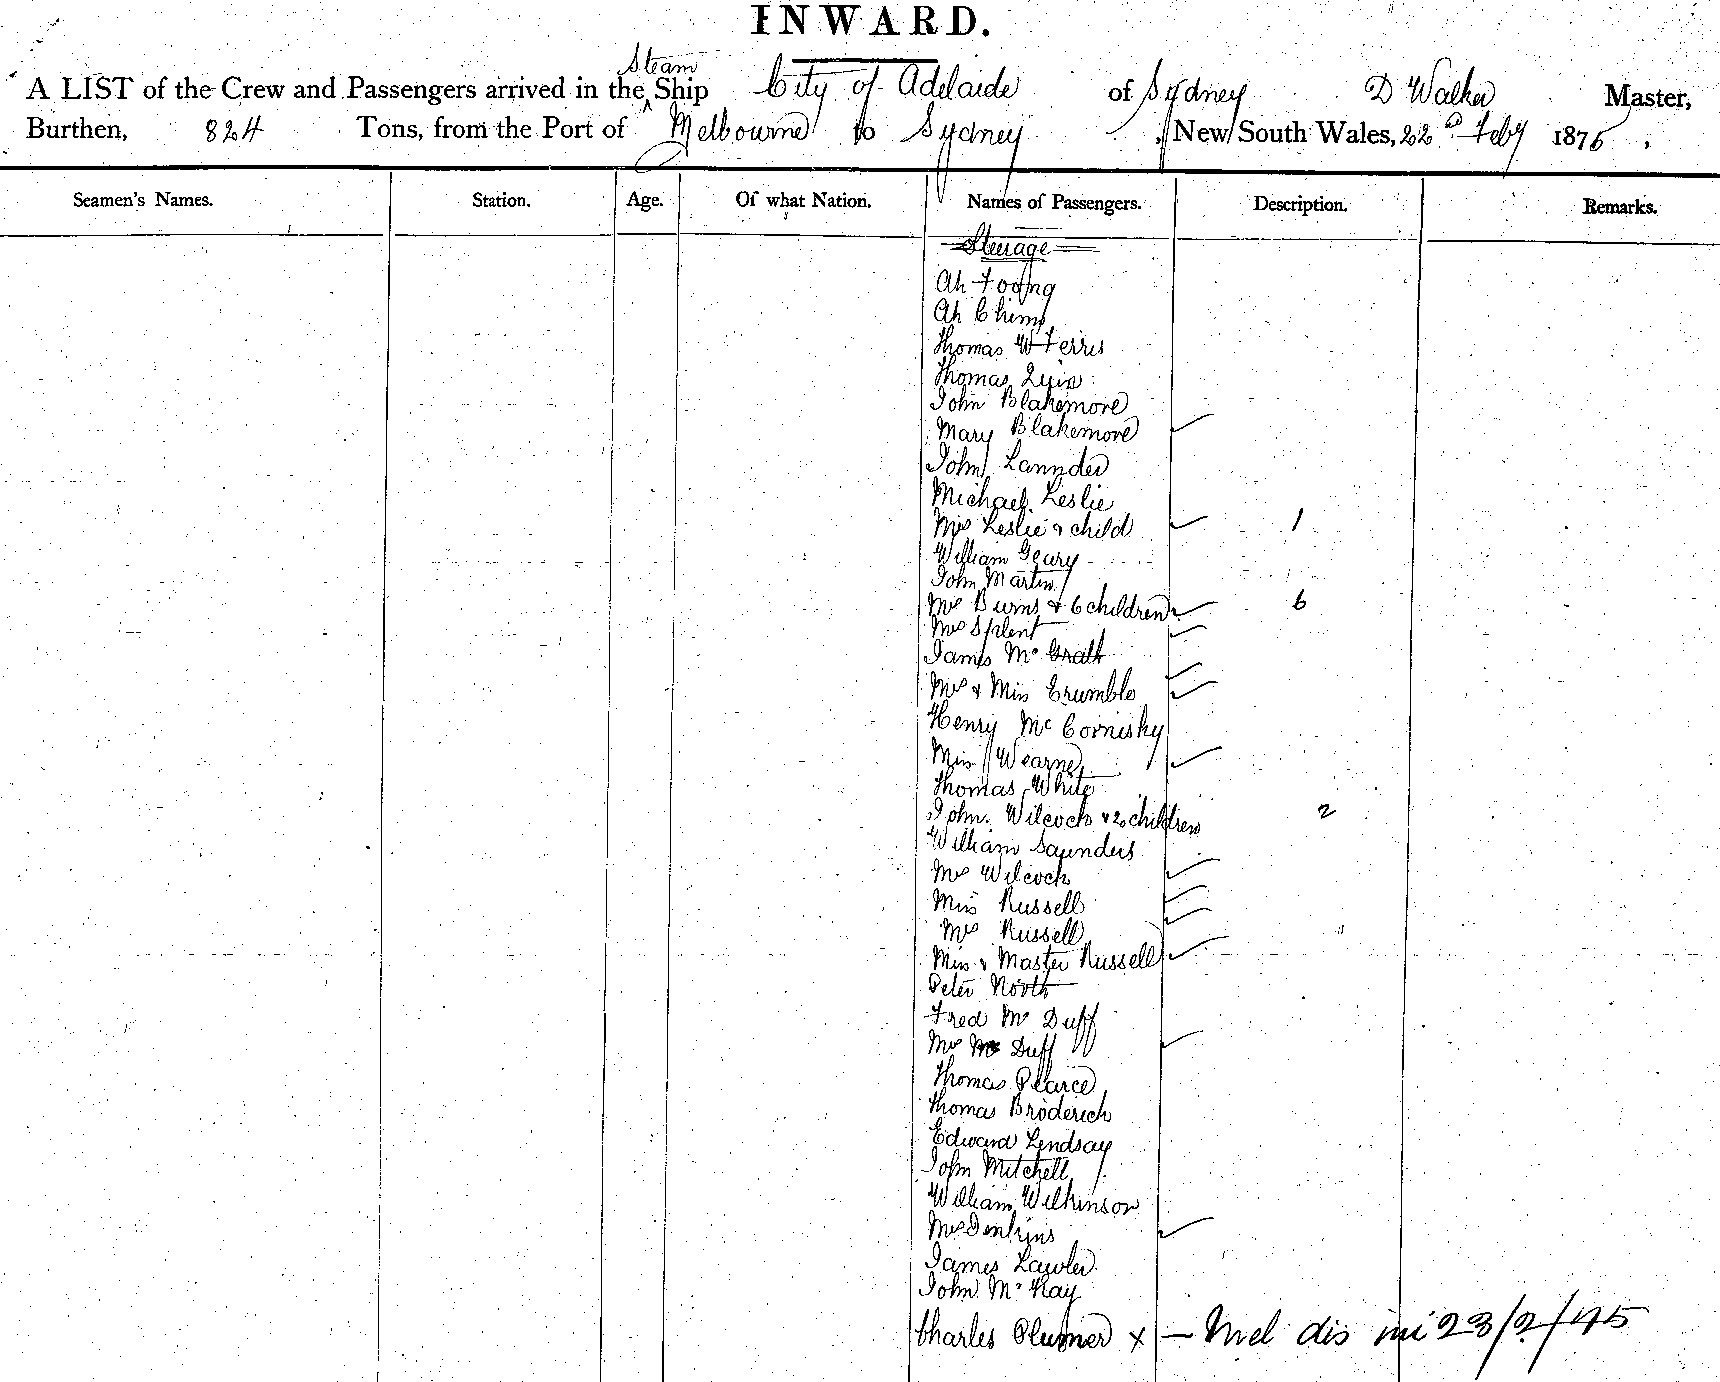 INWARD.
Steam
A LIST of the Crew and Passengers arrived in the Ship City of Adelaide of Sydney D Walker Master,
Burthen, 824 Tons, from the Port of Melbourne to Sydney, New South Wales, 22d Feby 1875.
Seamen's Names. Station. Age. Of what Nation. Names of Passengers. Description. Remarks.
Steerage
Ah Foong
Ah Chimg
Thomas W Ferris
Thomas Quin
John Blakemore
Mary Blakemore
John Lannder
Michael Leslie
Mrs Leslie & child 1
William Geary
John Martin
Mrs Burns & 6 children 6
Mrs Splent
James Mc Grath
Mrs & Miss Crumble
Henry Mc Cornisky
Miss Wearne
Thomas White
John Wilcock & 2 children 2
William Saunders
Mrs Wilcock
Miss Russell
Mrs Russell
Miss & Master Russell
Peter North
Fred Mc Duff
Mrs Mc Duff
Thomas Pearce
Thomas Broderick
Edward Lindsay
John Mitchell
William Wilkinson
Mrs Jenkins
James Lawler
John Mc Kay
Charles Plumer x — Mel dis 23/2/75